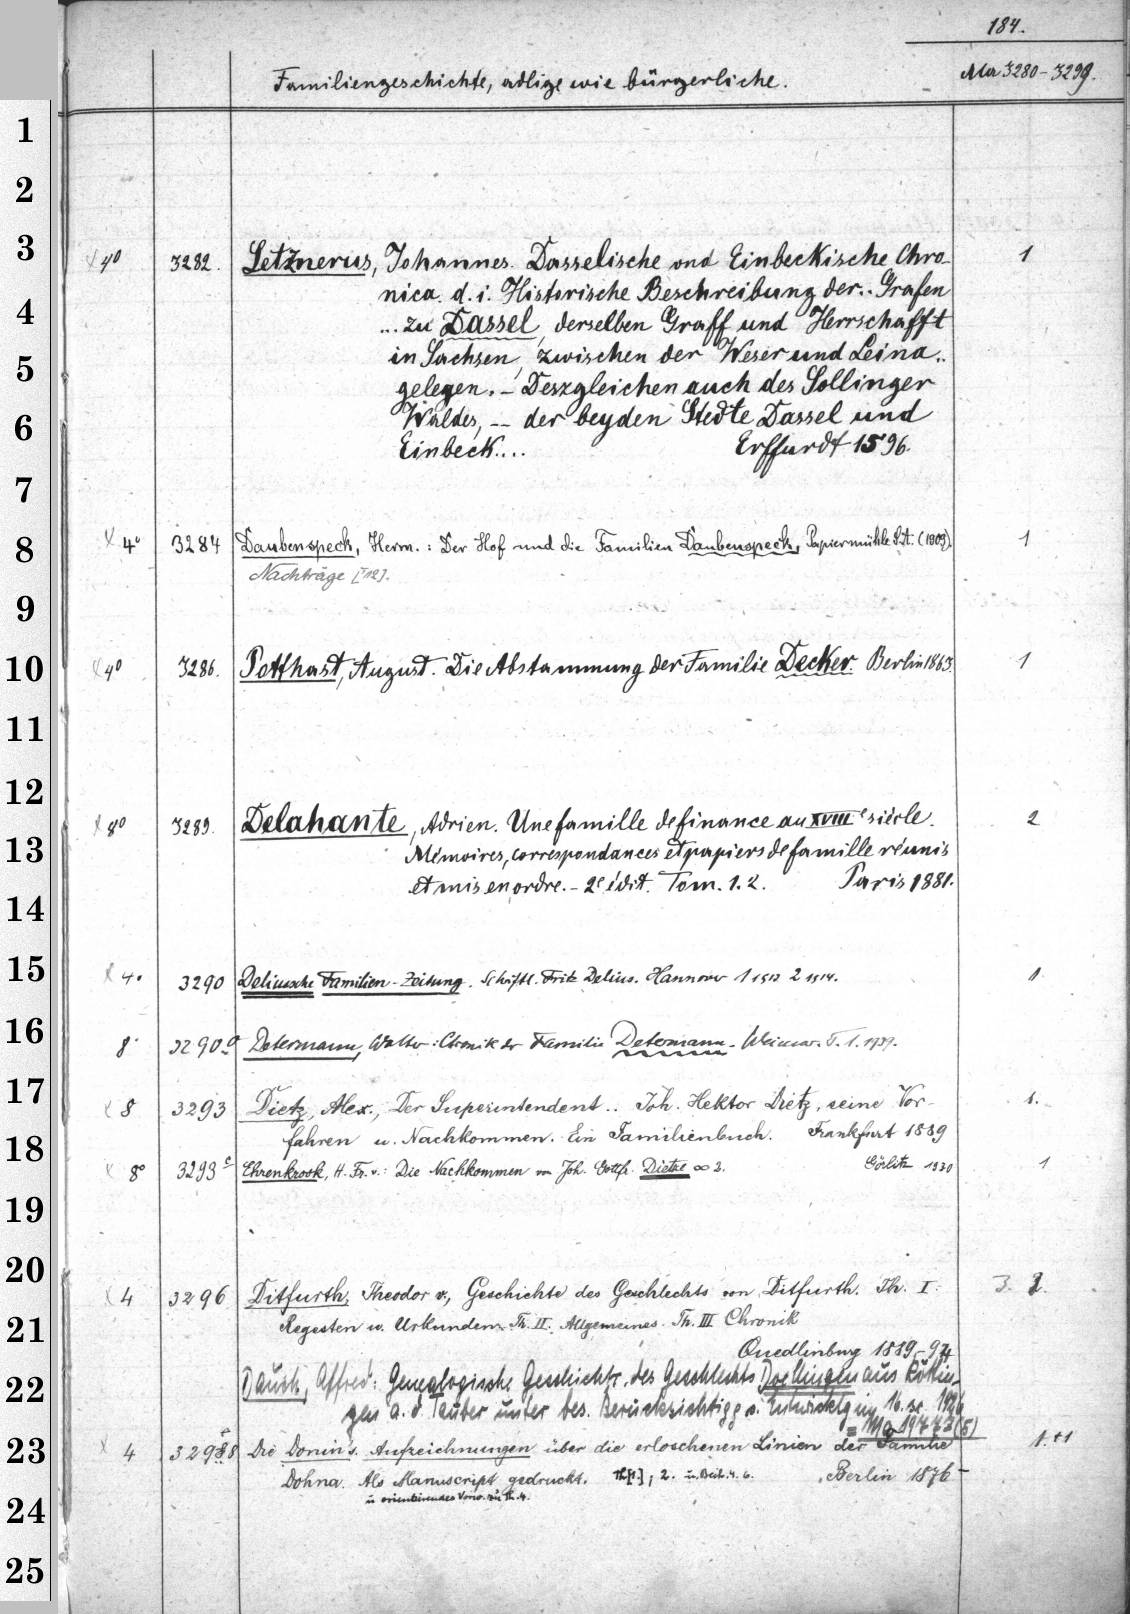 184.
Familiengeschichte, adlige wie bürgerliche. Ma 3280-3299.
1
2
3
x 4° 3282. Letznerus, Johannes. Dasselische vnd Einbeckische Chro- 1
nica. d. i. Historische Beschreibung der.. Grafen
4
... zu Dassel, derselben Graff und Herrschafft
in Sachsen, zwischen der Weser und Leina..
5
gelegen. - Deszgleichen auch des Sollinger
Waldes, -- der beyden Stedte Dassel und
6
Einbeck.... Erffurdt 1596.
7
8
x 4° 3284 Daubenspeck, Herm.: Der Hof und die Familien Daubenspeck, Papiermühle S.A. (1909). 1
Nachträge [712].
9
10
x 4° 3286. Potthast, August. Die Abstammung der Familie Decker. Berlin 1863. 1
11
12
x 8° 3289. Delahante, Adrien. Une famille de finance au XVIIIe siècle. 2
13
Mémoires, correspondances et papiers de famille réunis
et mis en ordre. - 2e édit. Tom. 1. 2. Paris 1881.
14
15
x 4° 3290 Deliussche Familien-Zeitung. Schriftl. Fritz Delius. Hannover 1 1912 2 1914. 1
16
8° 3290a Determann, Walter: Chronik der Familie Determann. Weimar. T. 1. 1939.
17
x 8 3293 Dietz, Alex., Der Superintendent.. Joh. Hektor Dietz, seine Vor- 1.
18
fahren u. Nachkommen. Ein Familienbuch. Frankfurt 1889
x 8° 3293c Ehrenkrook, H. Fr. v.: Die Nachkommen von Joh. Gottfr. Dietze ∞ 2. Görlitz 1930 1
19
20
x 4 3296 Ditfurth, Theodor v., Geschichte des Geschlechts von Ditfurth. Th. I: 3.
21
Regesten u. Urkunden. Th. II. Allgemeines. Th. III Chronik
Quedlinburg 1889-94
22
Dauch, Alfred: Genealogische Geschichte des Geschlechts Doellingen aus Röttin-
gen a. d. Tauber unter bes. Berücksichtigg s. Entwicklg im 16. sc. 1926
= Ma 19773(5)
23
x 4 3298 Die Donin's. Aufzeichnungen über die erloschenen Linien der Familie 1.+1
Dohna. Als Manuscript gedruckt. Th[1]; 2. u. Beih. 4. 6. Berlin 1876-
24
u orientirendes Vorw. zu Th. 4.
25